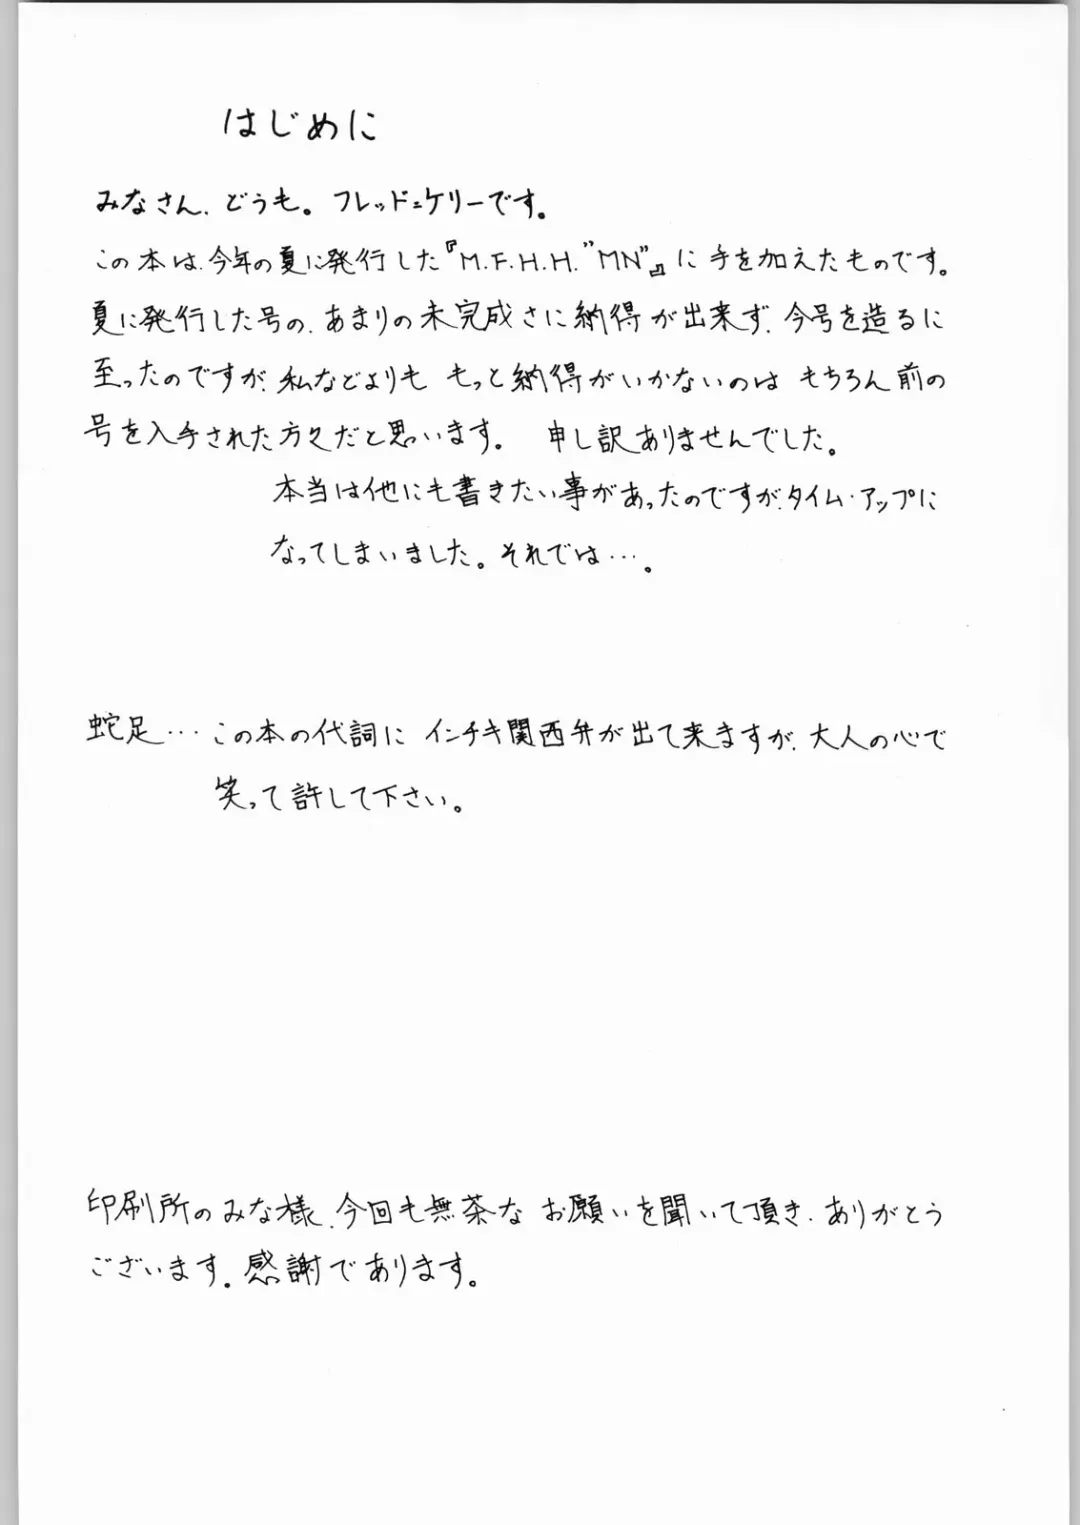 はじめに
みなさん、どうも。フレッド=ケリーです。
この本は、今年の夏に発行した『M.F.H.H."MN"』に手を加えたものです。
夏に発行した号の、あまりの未完成さに納得が出来ず、今号を造るに
至ったのですが、私などよりも もっと納得がいかないのは もちろん前の
号を入手された方々だと思います。 申し訳ありませんでした。
本当は他にも書きたい事があったのですが、タイム・アップに
なってしまいました。それでは…。
蛇足… この本の代詞に インチキ関西弁が出て来ますが、大人の心で
笑って許して下さい。
印刷所のみな様、今回も無茶な お願いを聞いて頂き、ありがとう
ございます。感謝であります。